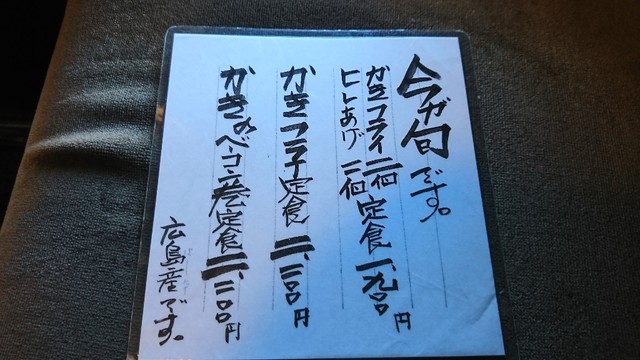 今が旬です。
かきフライ二個
ヒレあげ 二個 定食 一、九〇〇円
かきフライ定食 二、二〇〇円
かきのベーコン巻定食 二、二〇〇円
広島産です。